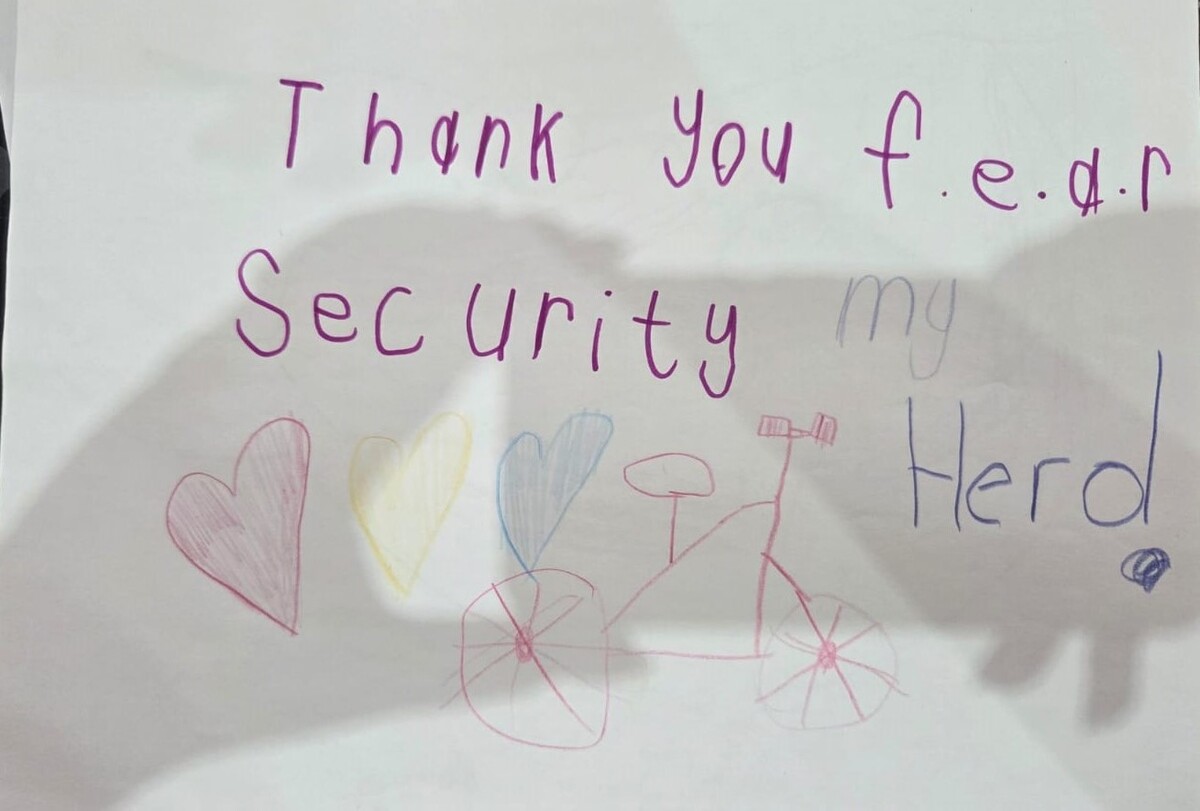 Thank You f.e.a.r
Security my
Hero!